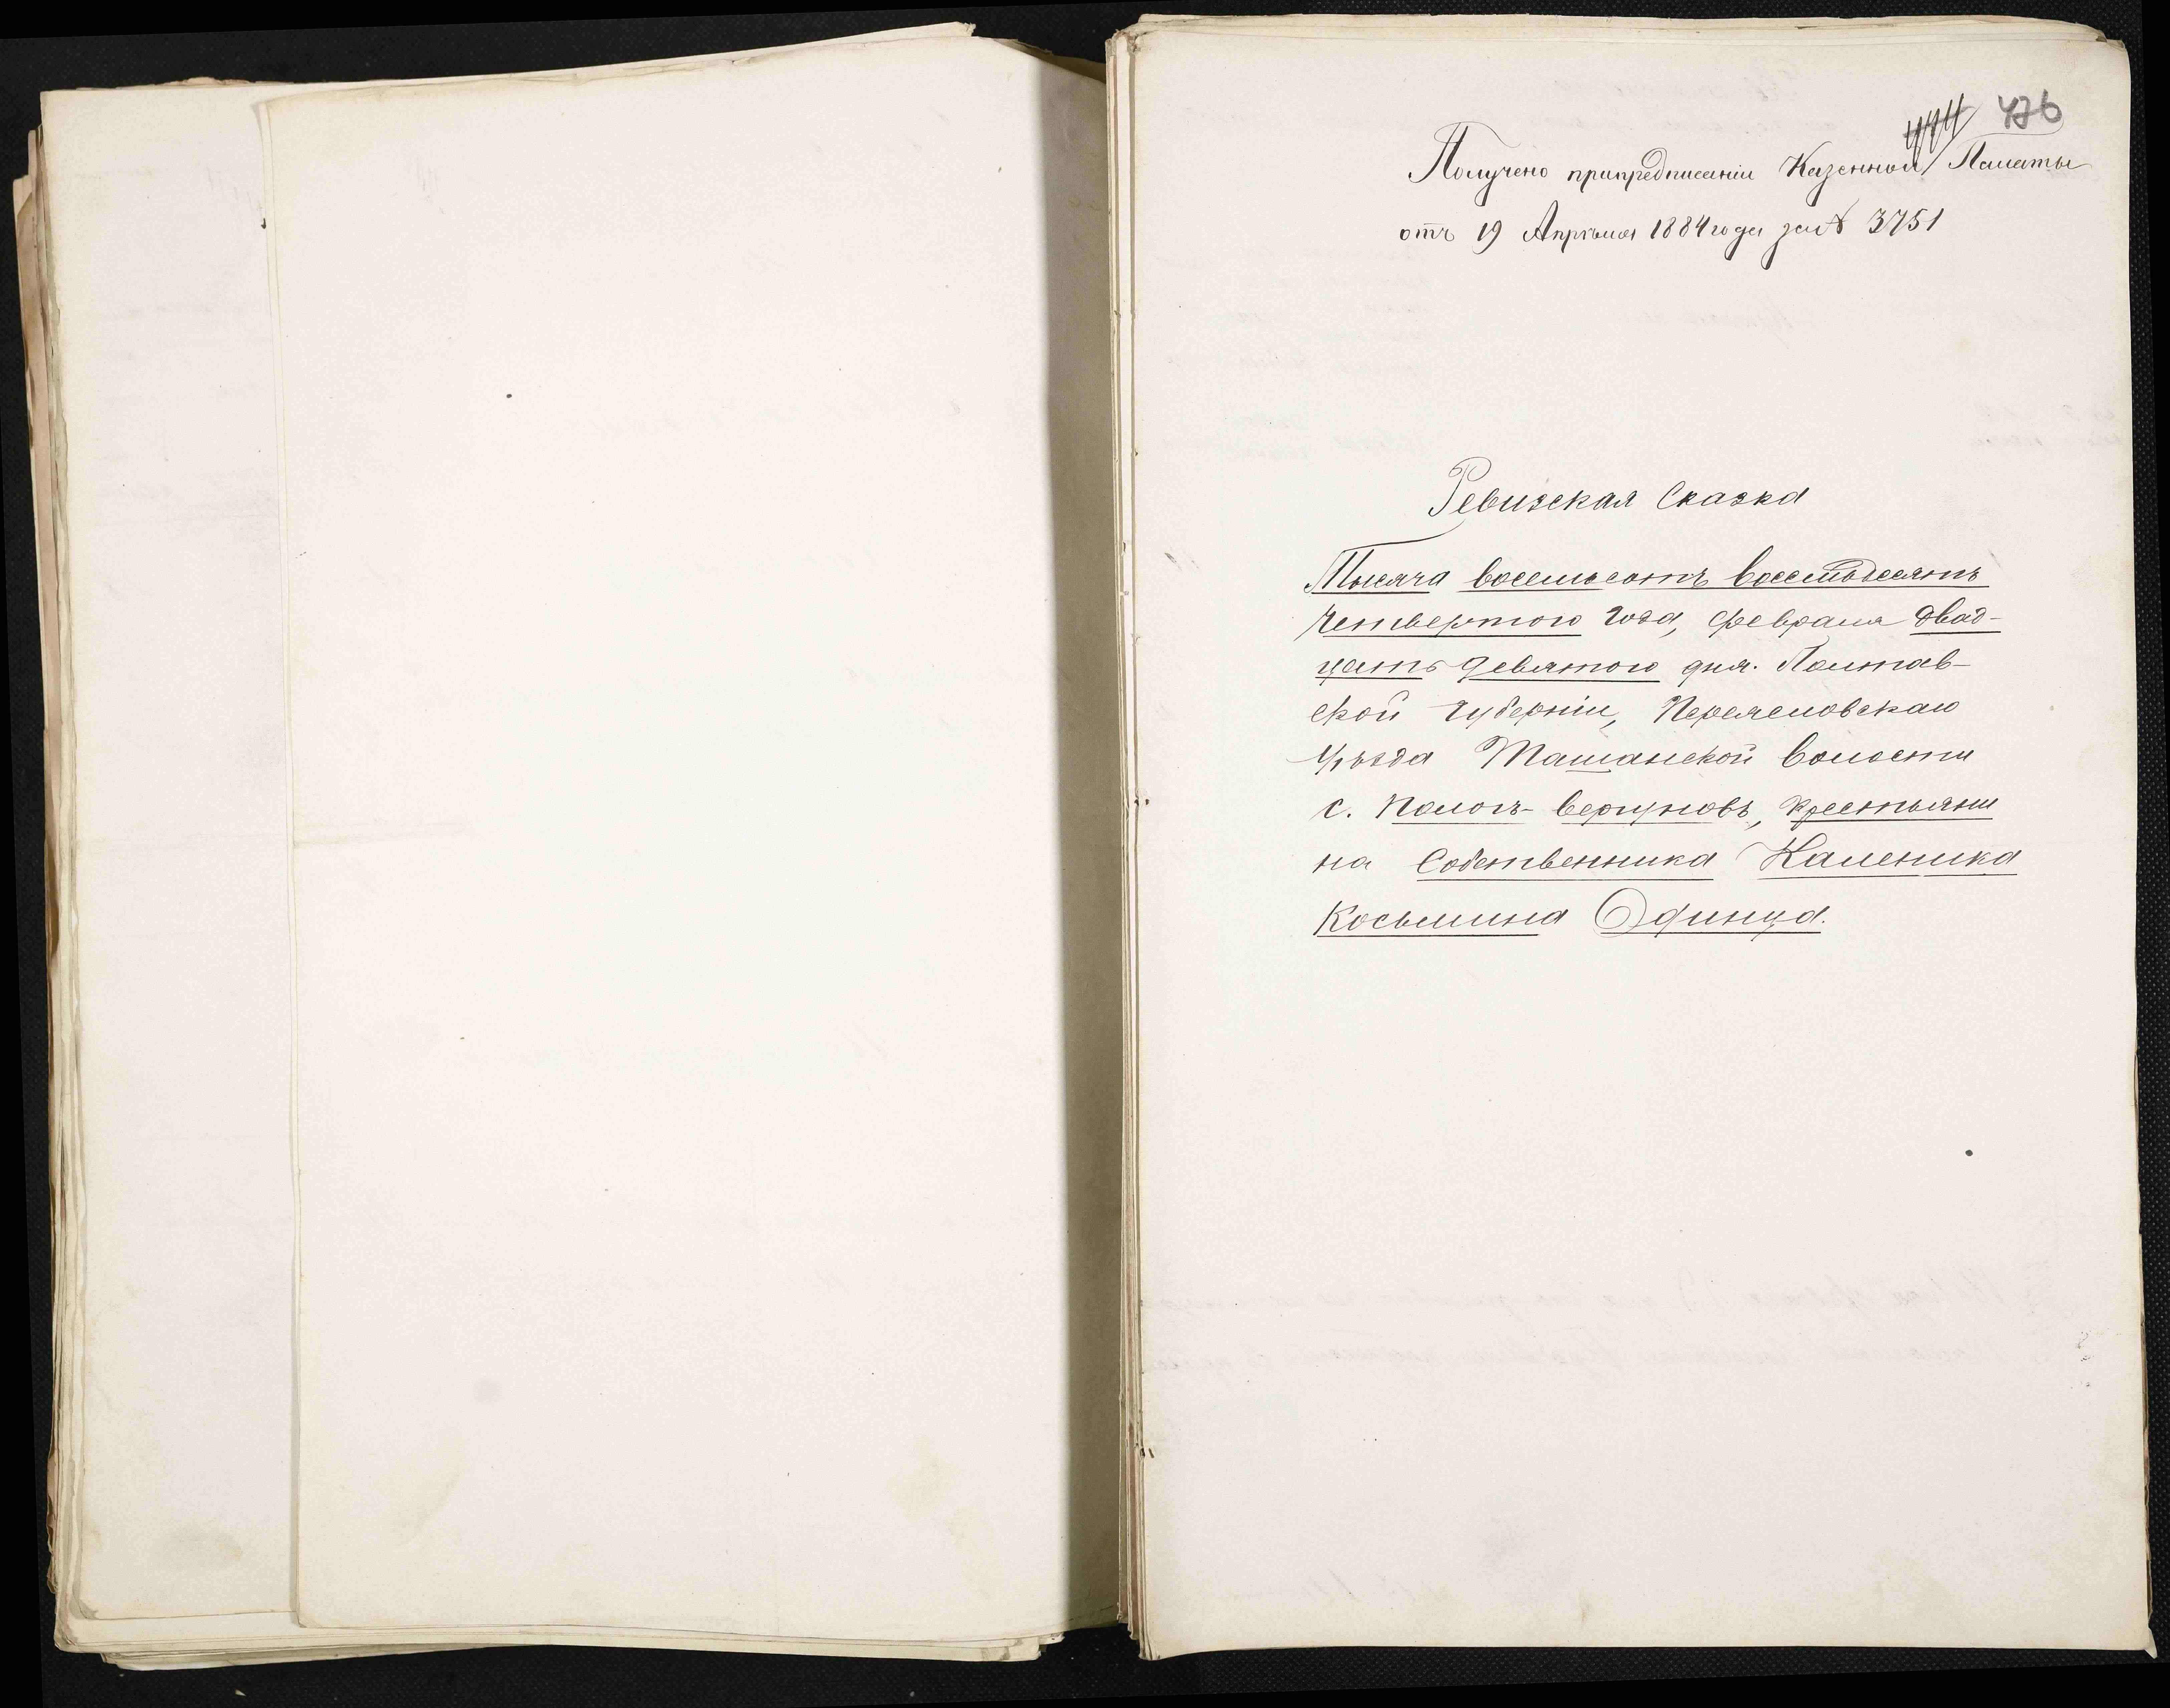 476
Получено припредписаніи Казенной Палаты
отъ 19 Апрѣля 1884 года за № 3751
Ревизская Сказка
Тысяча восемьсотъ восемьдесятъ
четвертого года, февраля двад-
цать девятого дня. Полтав-
ской губерніи, Переяславскаго
уѣзда Ташанской волости
с. Пологъ-Вергуновъ, крестьяни
на Собственника Каленика
Косьмина Одинца.